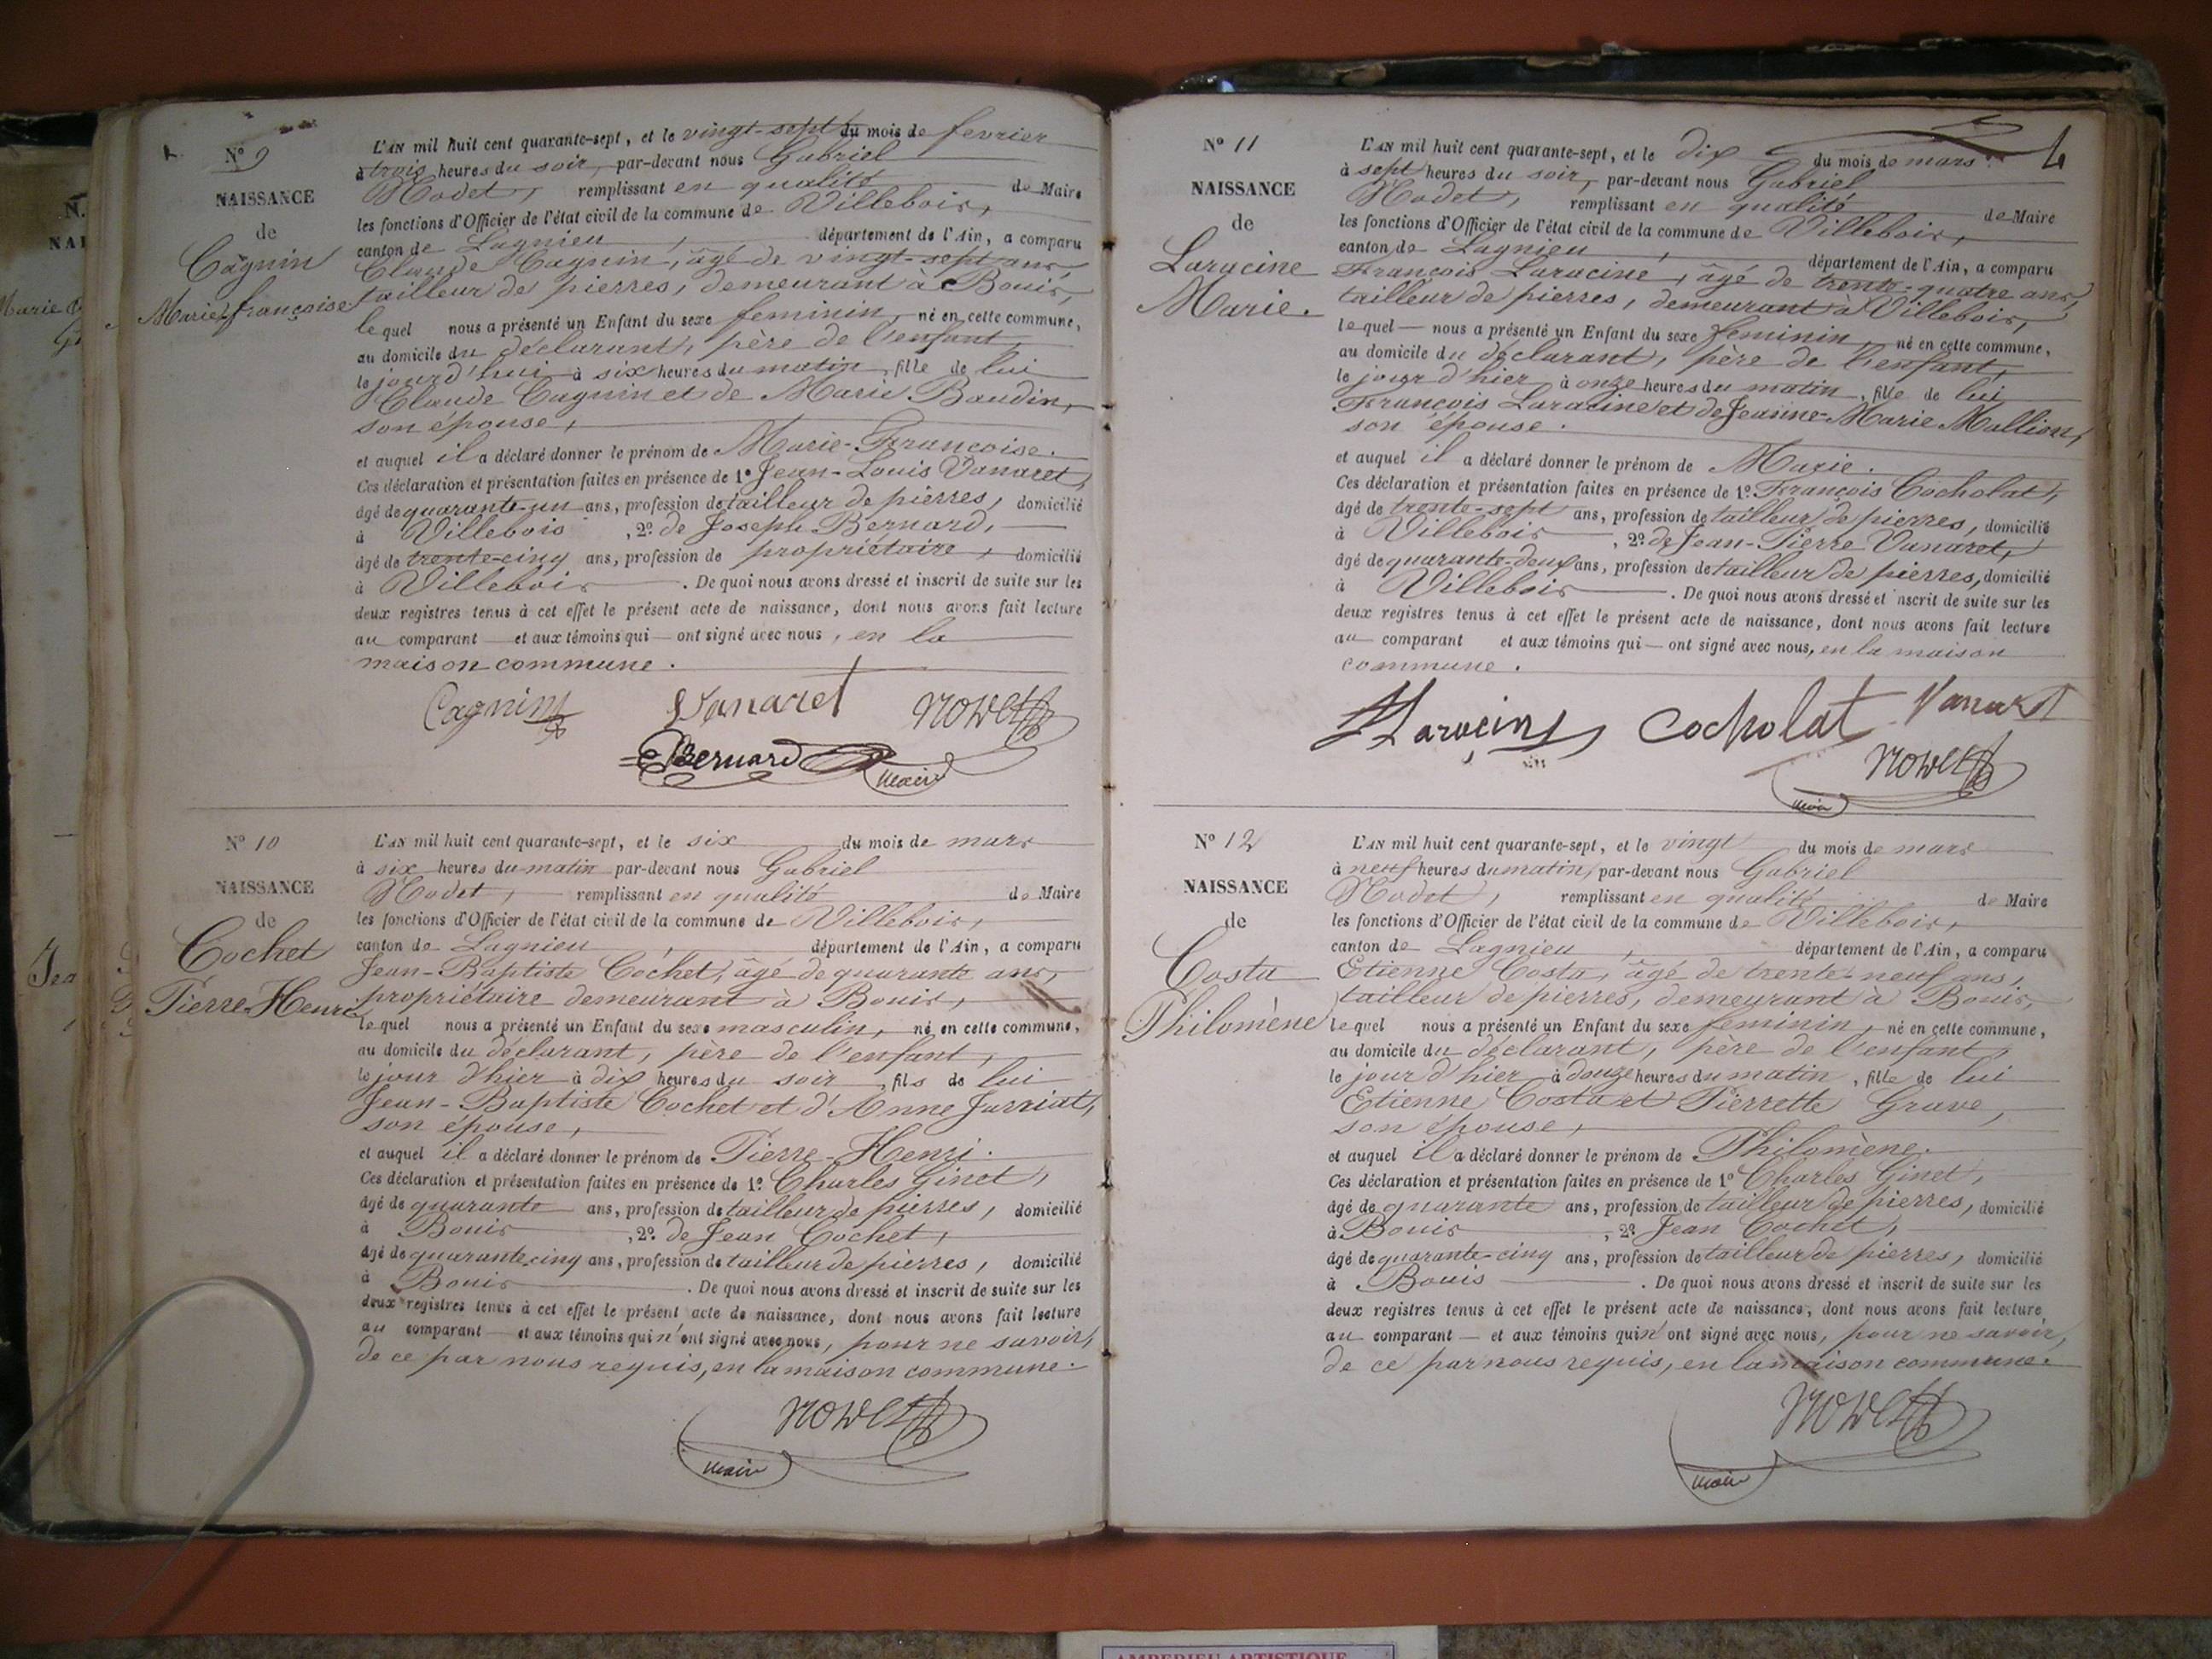 N° 9
NAISSANCE
de
Cagnin
Marie-françoise
L'AN mil huit cent quarante-sept, et le vingt-sept du mois de fevrier
à trois heures du soir, par-devant nous Gabriel
Nodet, remplissant en qualité de Maire
les fonctions d'Officier de l'état civil de la commune de Villebois,
canton de Lagnieu, département de l'Ain, a comparu
Claude Cagnin, âgé de vingt-sept ans,
tailleur de pierres, demeurant à Bouis,
lequel nous a présenté un Enfant du sexe feminin, né en cette commune,
au domicile du déclarant, père de l'enfant,
le jourd'hui à six heures du matin, fille de lui
Claude Cagnin et de Marie Baudin,
son épouse,
et auquel il a déclaré donner le prénom de Marie-Françoise.
Ces déclaration et présentation faites en présence de 1° Jean-Louis Vanaret,
âgé de quarante-un ans, profession de tailleur de pierres, domicilié
à Villebois, 2° de Joseph Bernard,
âgé de trente-cinq ans, profession de propriétaire, domicilié
à Villebois. De quoi nous avons dressé et inscrit de suite sur les
deux registres tenus à cet effet le présent acte de naissance, dont nous avons fait lecture
au comparant et aux témoins qui ont signé avec nous, en la
maison commune.
Cagnin Vanaret Nodet
Bernard maire
N° 10
NAISSANCE
de
Cochet
Pierre-Henri
L'AN mil huit cent quarante-sept, et le six du mois de mars
à six heures du matin par-devant nous Gabriel
Nodet, remplissant en qualité de Maire
les fonctions d'Officier de l'état civil de la commune de Villebois,
canton de Lagnieu, département de l'Ain, a comparu
Jean-Baptiste Cochet, âgé de quarante ans,
propriétaire demeurant à Bouis,
lequel nous a présenté un Enfant du sexe masculin, né en cette commune,
au domicile du déclarant, père de l'enfant,
le jour d'hier à dix heures du soir, fils de lui
Jean-Baptiste Cochet et d'Anne Jurriat,
son épouse,
et auquel il a déclaré donner le prénom de Pierre-Henri.
Ces déclaration et présentation faites en présence de 1° Charles Ginet,
âgé de quarante ans, profession de tailleur de pierres, domicilié
à Bouis, 2° de Jean Cochet,
âgé de quarante-cinq ans, profession de tailleur de pierres, domicilié
à Bouis. De quoi nous avons dressé et inscrit de suite sur les
deux registres tenus à cet effet le présent acte de naissance, dont nous avons fait lecture
au comparant et aux témoins qui n'ont signé avec nous, pour ne savoir,
de ce par nous requis, en la maison commune.
Nodet
maire
4
N° 11
NAISSANCE
de
Laracine
Marie.
L'AN mil huit cent quarante-sept, et le dix du mois de mars
à sept heures du soir, par-devant nous Gabriel
Nodet, remplissant en qualité de Maire
les fonctions d'Officier de l'état civil de la commune de Villebois,
canton de Lagnieu, département de l'Ain, a comparu
François Laracine, âgé de trente-quatre ans,
tailleur de pierres, demeurant à Villebois,
lequel nous a présenté un Enfant du sexe feminin, né en cette commune,
au domicile du déclarant, père de l'enfant,
le jour d'hier à onze heures du matin, fille de lui
François Laracine et de Jeanne-Marie Mallion,
son épouse.
et auquel il a déclaré donner le prénom de Marie.
Ces déclaration et présentation faites en présence de 1° François Cocholat,
âgé de trente-sept ans, profession de tailleur de pierres, domicilié
à Villebois, 2° de Jean-Pierre Vanaret,
âgé de quarante-deux ans, profession de tailleur de pierres, domicilié
à Villebois. De quoi nous avons dressé et inscrit de suite sur les
deux registres tenus à cet effet le présent acte de naissance, dont nous avons fait lecture
au comparant et aux témoins qui ont signé avec nous, en la maison
commune.
Laracine Cocholat Vanaret
Nodet
maire
N° 12
NAISSANCE
de
Costa
Philomène
L'AN mil huit cent quarante-sept, et le vingt du mois de mars
à neuf heures du matin, par-devant nous Gabriel
Nodet, remplissant en qualité de Maire
les fonctions d'Officier de l'état civil de la commune de Villebois,
canton de Lagnieu, département de l'Ain, a comparu
Etienne Costa, âgé de trente-neuf ans,
tailleur de pierres, demeurant à Bouis,
lequel nous a présenté un Enfant du sexe feminin, né en cette commune,
au domicile du déclarant, père de l'enfant,
le jour d'hier à douze heures du matin, fille de lui
Etienne Costa et Pierrette Grave,
son épouse,
et auquel il a déclaré donner le prénom de Philomène.
Ces déclaration et présentation faites en présence de 1° Charles Ginet,
âgé de quarante ans, profession de tailleur de pierres, domicilié
à Bouis, 2° Jean Cochet,
âgé de quarante-cinq ans, profession de tailleur de pierres, domicilié
à Bouis. De quoi nous avons dressé et inscrit de suite sur les
deux registres tenus à cet effet le présent acte de naissance, dont nous avons fait lecture
au comparant et aux témoins qui n'ont signé avec nous, pour ne savoir,
de ce par nous requis, en la maison commune.
Nodet
maire